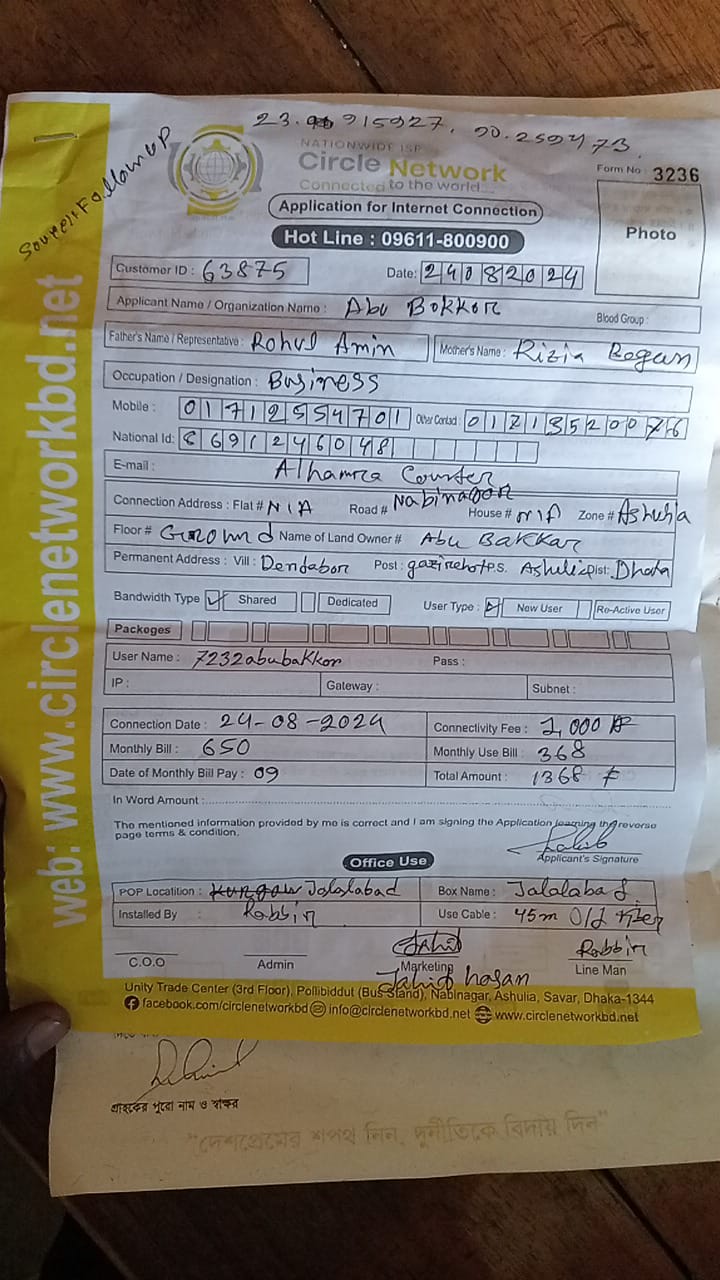 23.915927, 90.259473
Source: Follow UP
NATIONWIDE ISP
Circle Network
Connected to the world....
Form No : 3236
Application for Internet Connection
Photo
Hot Line : 09611-800900
Customer ID : 63875 Date: 24082024
Applicant Name / Organization Name : Abu Bokkor Blood Group :
Father's Name / Representative : Rohul Amin Mother's Name : Rizia Begun
Occupation / Designation : Business
Mobile : 01712554701 Other Contact : 01713520076
National Id: 8691246048
E-mail : Alhamra Counter
Connection Address : Flat # N/A Road # Nabinagor House # N/A Zone # Ashulia
Floor # Ground Name of Land Owner # Abu Bakkar
Permanent Address : Vill : Dendabor Post : P.S. Ashulia Dist: Dhaka
Bandwidth Type Shared Dedicated User Type : New User Re-Active User
Packages
User Name : 7232abubakkor Pass :
IP : Gateway : Subnet :
Connection Date : 24-08-2024 Connectivity Fee : 1,000
Monthly Bill : 650 Monthly Use Bill : 368
Date of Monthly Bill Pay : 09 Total Amount : 1368
In Word Amount :
The mentioned information provided by me is correct and I am signing the Application learning the reverse
page terms & condition.
Applicant's Signature
Office Use
POP Locatiion : Jalalabad Box Name : Jalalabad
Installed By : Rabbir Use Cable : 45m Old Fiber
Jahid Rabbir
C.O.O Admin Marketing Line Man
Jahid hasan
Unity Trade Center (3rd Floor), Pollibiddut (Bus Stand), Nabinagar, Ashulia, Savar, Dhaka-1344
facebook.com/circlenetworkbd info@circlenetworkbd.net www.circlenetworkbd.net
web: www.circlenetworkbd.net
গ্রাহকের পুরো নাম ও স্বাক্ষর
"দেশপ্রেমের শপথ নিন, দুর্নীতিকে বিদায় দিন"